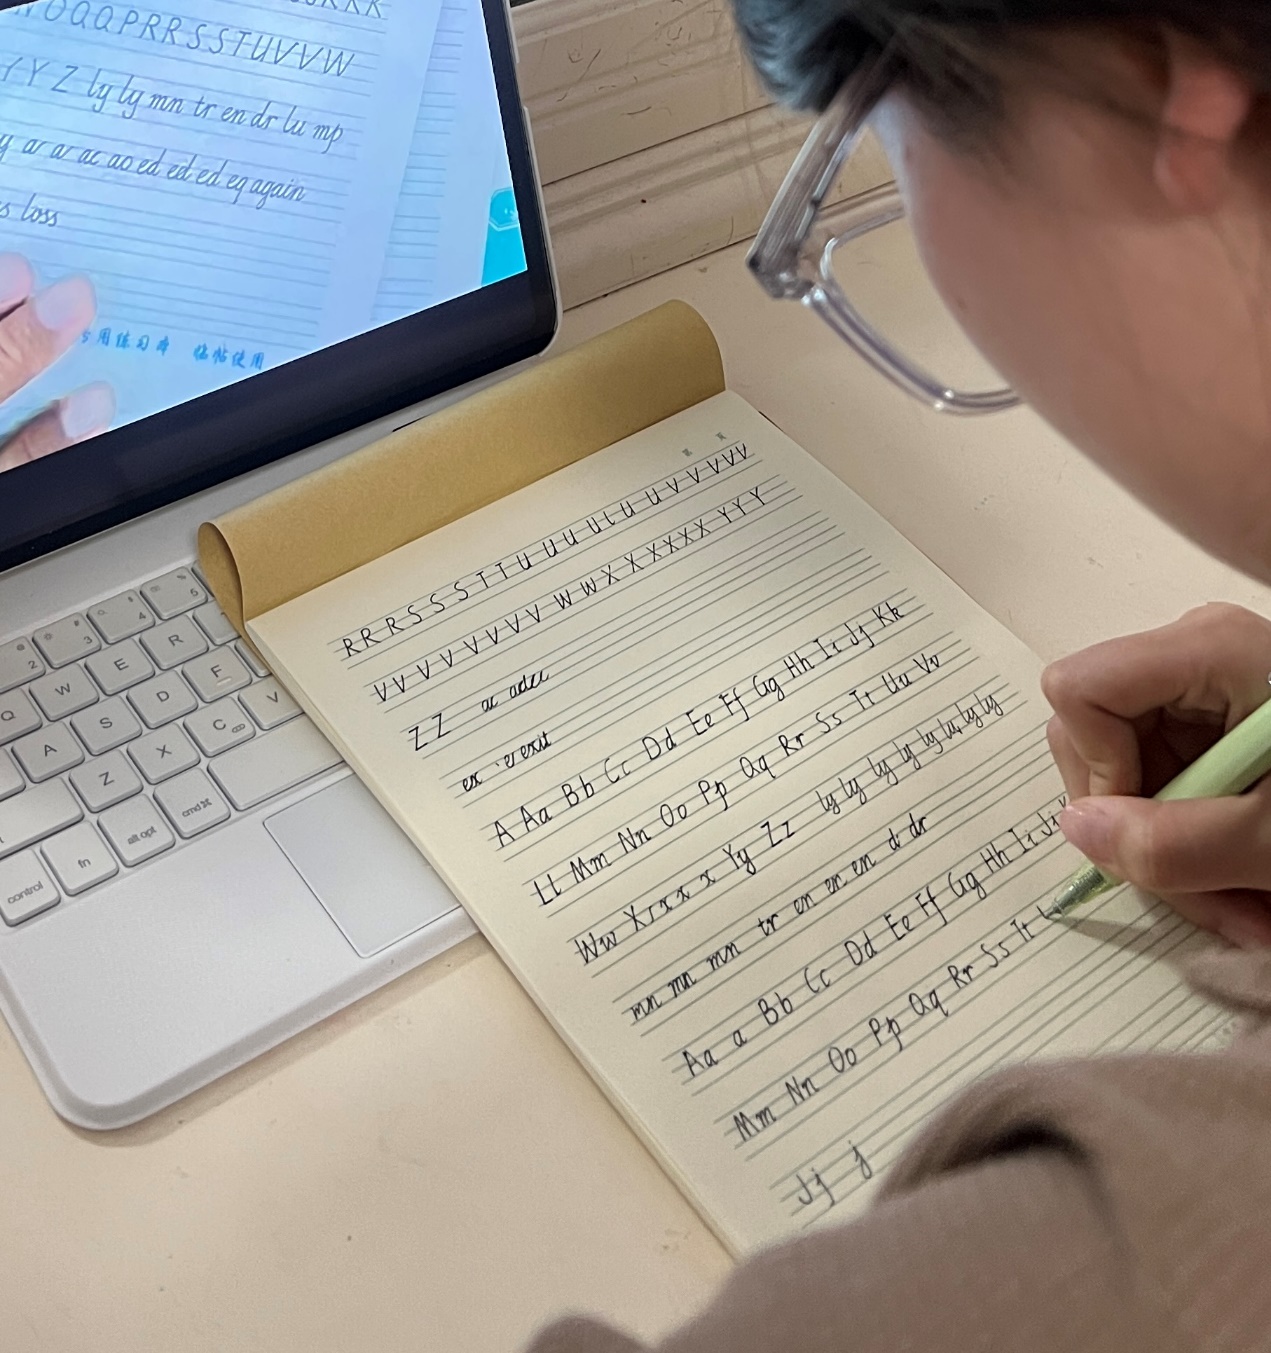 O Q Q P R R S S T U V V W
Y Y Z ly ly mn tr en dr lu mp
ar ar ac ao ed ed ed eq again
loss
用练习本 临帖使用
R R R S S S T T U U U U U U V V V V V
V V V V V V V V W W X X X X X X X Y Y Y
Z Z ac adec
ex er exit
A Aa Bb Cc Dd Ee Ff Gg Hh Ii Jj Kk
Ll Mm Nn Oo Pp Qq Rr Ss Tt Uu Vv
Ww Xx x x x Yy Zz ly ly ly ly ly ly ly ly
mn mn mn tr en en en d dr
Aa a Bb Cc Dd Ee Ff Gg Hh Ii Jj
Mm Nn Oo Pp Qq Rr Ss Tt
Jj j
2 3 4 5
Q W E R
A S D F
Z X C V
control fn alt opt cmd ⌘